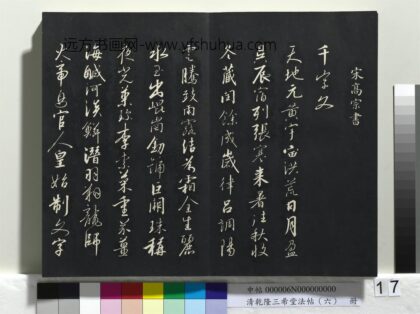 远方书画网-www.yfshuhua.com
宋高宗書
千字文
天地元黄宇宙洪荒日月盈
昃辰宿列張寒来暑往秋收
冬藏閏餘成歲律吕調陽
雲騰致雨露結為霜金生麗
水玉出崐岡劎號巨闕珠稱
夜光菓珍李柰菜重芥薑
海鹹河淡鱗潜羽翔龍師
火帝鳥官人皇始制文字
17
申帖 000006N000000000
清乾隆三希堂法帖（六） 册